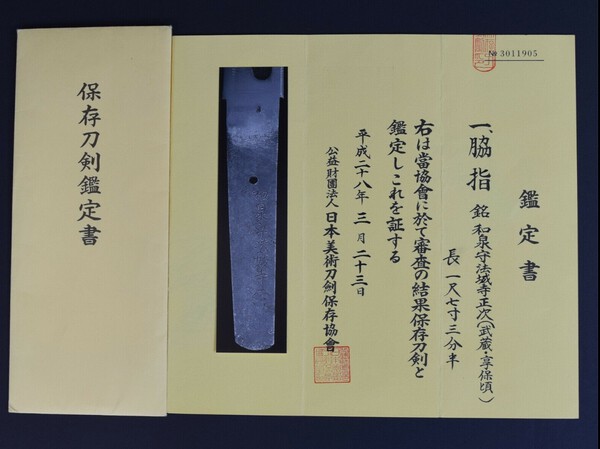 № 3011905
鑑定書
一、脇指 銘 和泉守法城寺正次(武蔵・享保頃)
長 一尺七寸三分半
右は當協會に於て審査の結果保存刀剣と
鑑定しこれを証する
平成二十八年 三月 二十三日
公益財團法人 日本美術刀劍保存協會
保存刀剣鑑定書